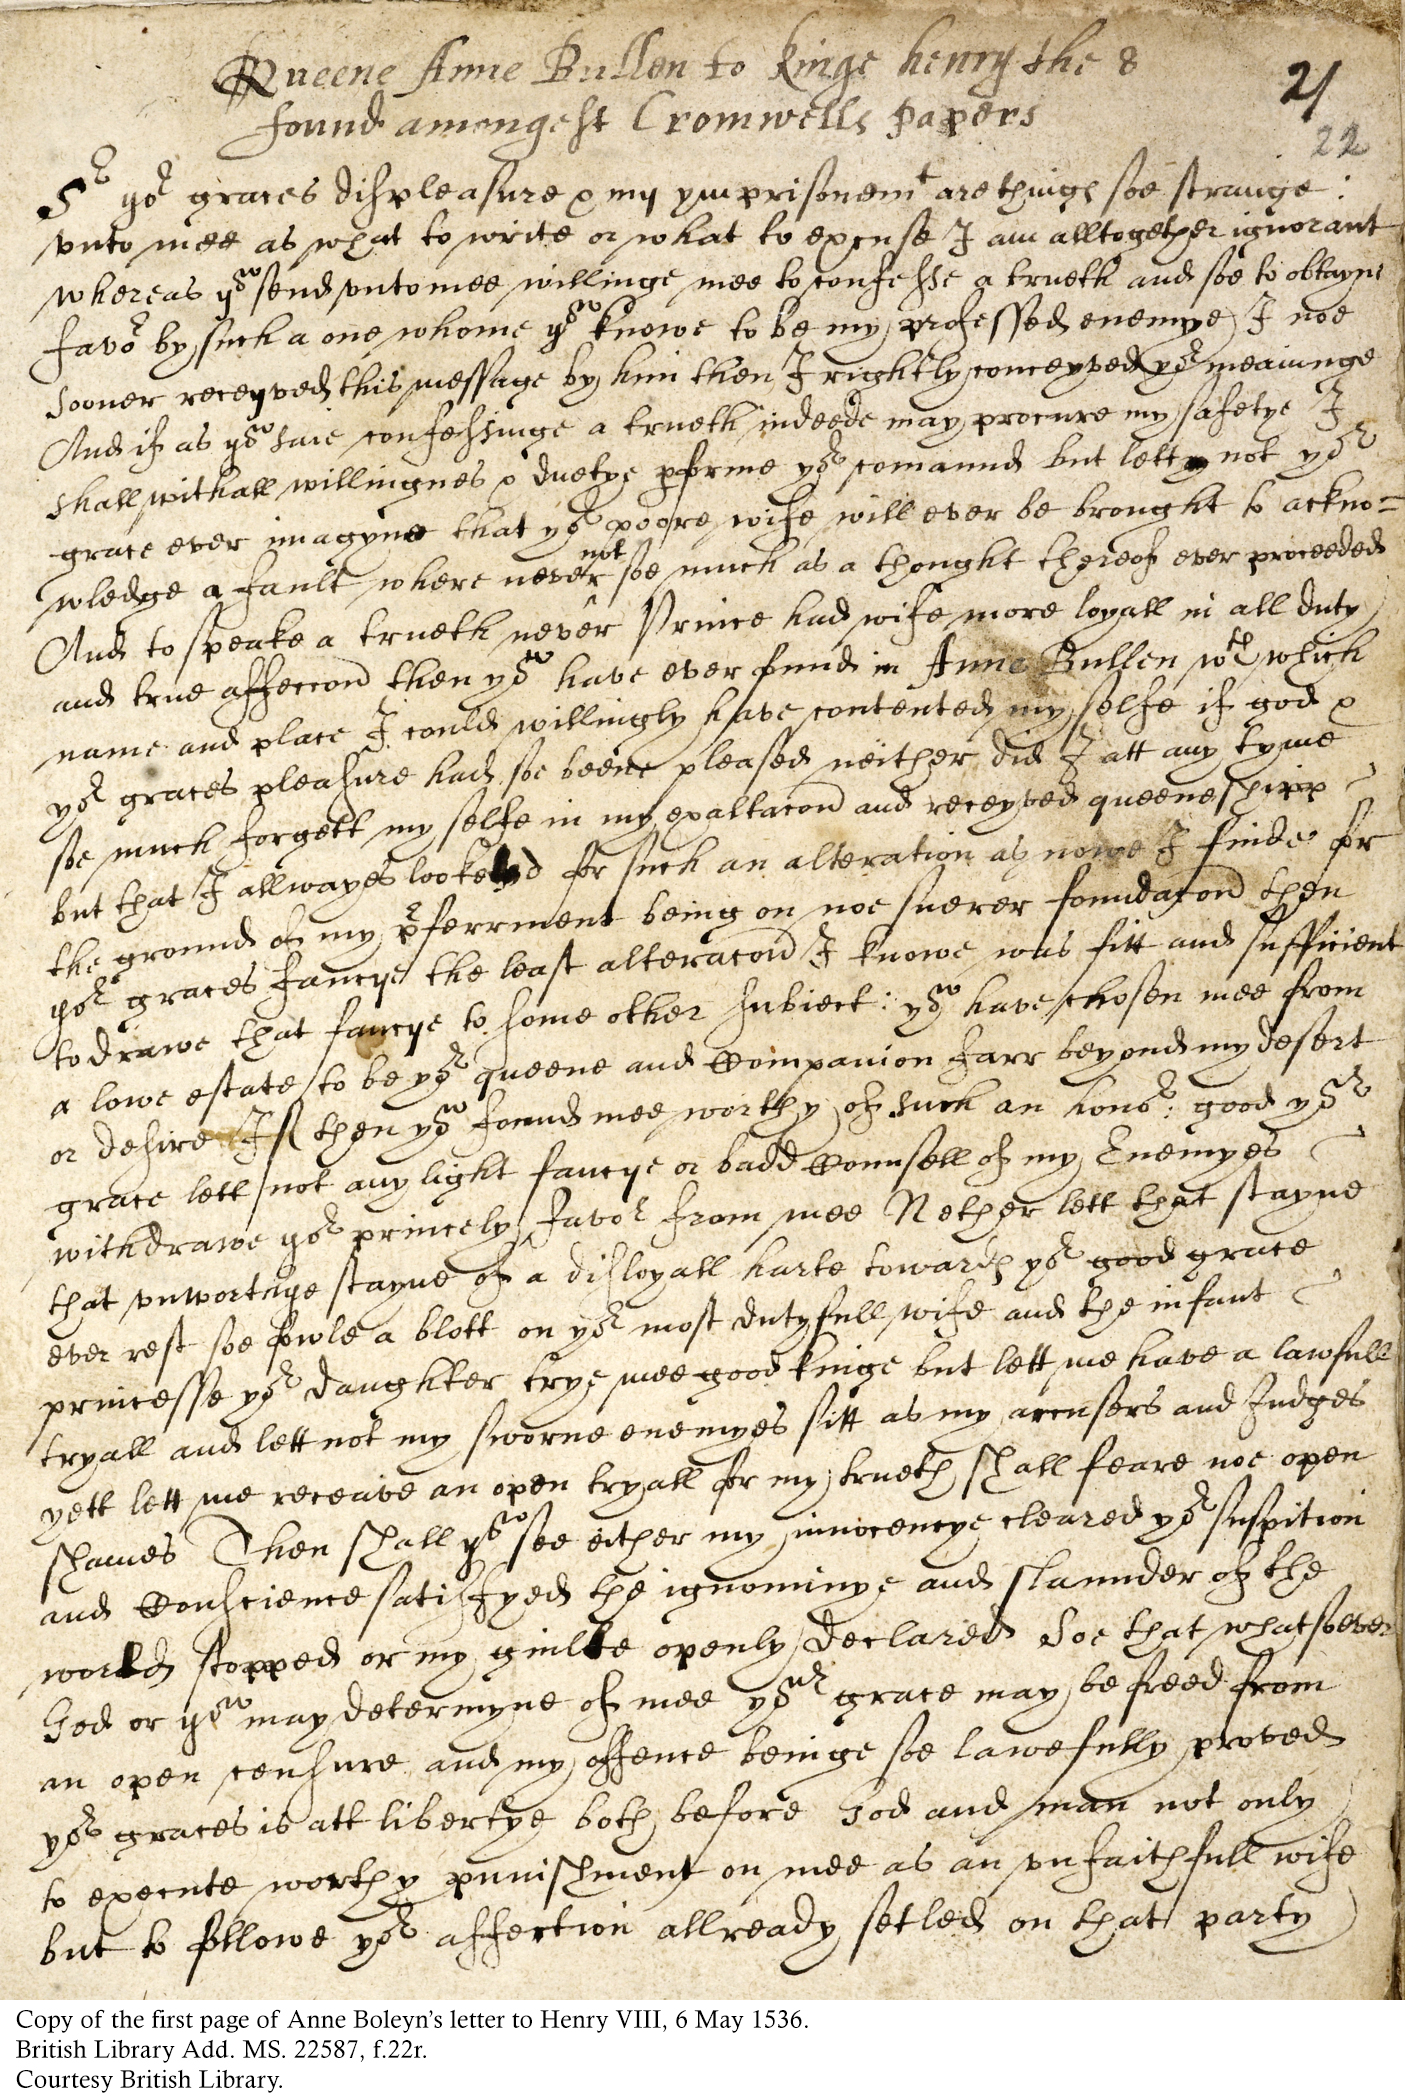 Queene Anne Bullen to kinge henry the 8
found amongest Cromwells papers
21
22
Sr yor graces displeasure & my ymprisonemt are things soe strange :
vnto mee as what to write or what to excuse I am alltogether ignorant
whereas yow send vnto mee willinge mee to confesse a trueth and soe to obtayne
favor by such a one whome yow knowe to be my professed enemye I noe
sooner receyved this message by him then I rightly conceyved yor meaninge
And if as yow saie confessinge a trueth indeede may procure my safetye I
shall with all willingnes & duetye pforme yor comaund but lett not yor
grace ever imagyne that yor poore wife will ever be brought to ackno=
wledge a fault where never not soe much as a thought thereof ever proceeded
And to speake a trueth never Prince had wife more loyall in all duty
and true affeccon then yow have ever fund in Anne Bullen wth which
name and place I could willingly have contented my selfe if god &
yor graces pleasure had soe beene pleased neither did I att any tyme
soe much forgett my selfe in my exaltacon and receyved queeneshipp
but that I allwayes looked for such an alteration as nowe I finde for
the ground of my pferrment being on noe suerer foundacon then
yor graces fancye the least alteracon I knowe was fitt and sufficient
to drawe that fancye to some other subiect : yow have chosen mee from
a lowe estate to be yor queene and Companion farr beyond my desert
or desire If then yow found mee worthy of such an honor : good yor
grace lett not any light fancye or badd Counsell of my Enemyes
withdrawe yor princely favor from mee Nether lett that stayne
that vnworthye stayne of a disloyall harte towards yor good grace
ever rest soe fowle a blott on yor most dutyfull wife and the infant
princesse yor daughter trye mee good kinge but lett me have a lawfull
tryall and lett not my sworne enemyes sitt as my accusers and Judges
yett lett me receave an open tryall for my trueth shall feare noe open
shames Then shall yow see either my innocencye cleared yor suspition
and Conscience satisfyed the ignominye and slaunder of the
world stopped or my guilte openly declared Soe that whatsoever
God or yow may determyne of mee yor grace may be freed from
an open censure and my offence beinge soe lawefully proved
yor graces is att libertye both before God and man not only
to execute worthy punishment on mee as an vnfaithfull wife
but to followe yor affection allready setled on that party
Copy of the first page of Anne Boleyn’s letter to Henry VIII, 6 May 1536.
British Library Add. MS. 22587, f.22r.
Courtesy British Library.